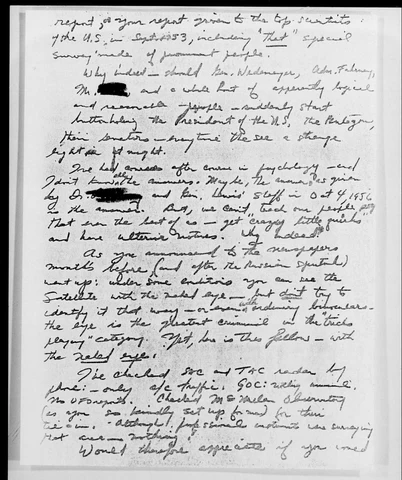 report, or your report given to the top scientists
of the U.S. in Sept. 1953, including "that" special
survey made of prominent people.
Why indeed - should Gen. Wedemeyer, Adm. Fahrney,
Mr. and a whole host of apparently logical
and reasonable people - suddenly start
buttonholing the President of the U.S., the Pentagon,
their Senators - everytime the see a strange
light at night.
I've had course after course in psychology - and
I don't know all the answers. Maybe, the answer is given
by Dr. and Gen. Staff in Oct 4, 1956
is the answer. But, we can't teach our people
that even the best of us get "crazy little quirks"
and have ulterior motives. Why indeed?
As you announced to the newspapers
months before (and after the Russian Sputnik)
went up: under some conditions you can see the
Satellite with the naked eye - but don't try to
identify it that way - or even with ordinary binoculars -
the eye is the greatest criminal in the "tricks
playing" category. Yet, here is this fellow - with
the naked eye!
I've checked SAC and TAC radar by
phone: - only a/c traffic. GOC: nothing unusual.
No UFO reports. Checked McMillan Observatory
as you so kindly set up for me for their
"Although, professional instruments was surveying
that area - nothing."
Would therefore appreciate if you would